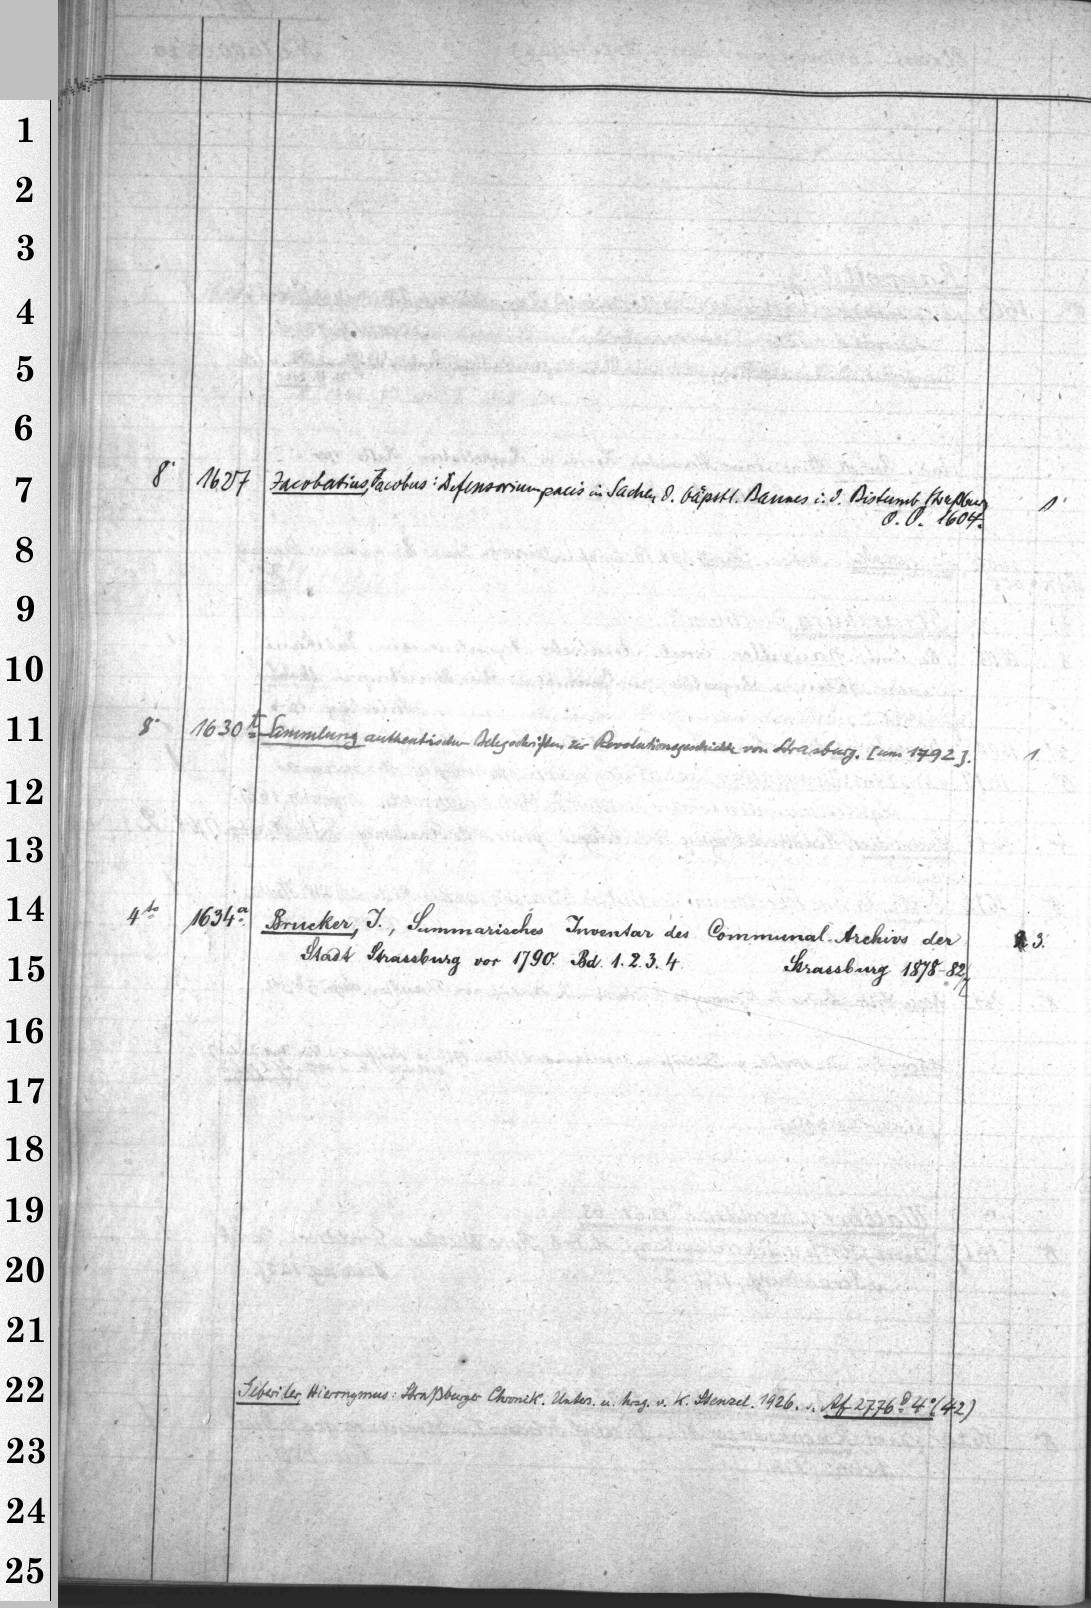 1
2
3
4
5
6
7
8
9
10
11
12
13
14
15
16
17
18
19
20
21
22
23
24
25
8° 1627 Jacobatius, Jacobus: Defensorium pacis in Sachen d. bäpstl. Bannes i. d. Bistumb Straßburg 1
O. O. 1604.
8° 1630 Sammlung authentischer Belegschriften zur Revolutionsgeschichte von Strasburg. [um 1792]. 1
4to 1634a Brucker, J., Summarisches Inventar des Communal-Archivs der 3.
Stadt Strassburg vor 1790. Bd. 1. 2. 3. 4 Strassburg 1878-82
Gebwiler, Hieronymus: Straßburger Chronik. Unters. u. hrsg. v. K. Stenzel. 1926. s. Af 2776 4° (42)